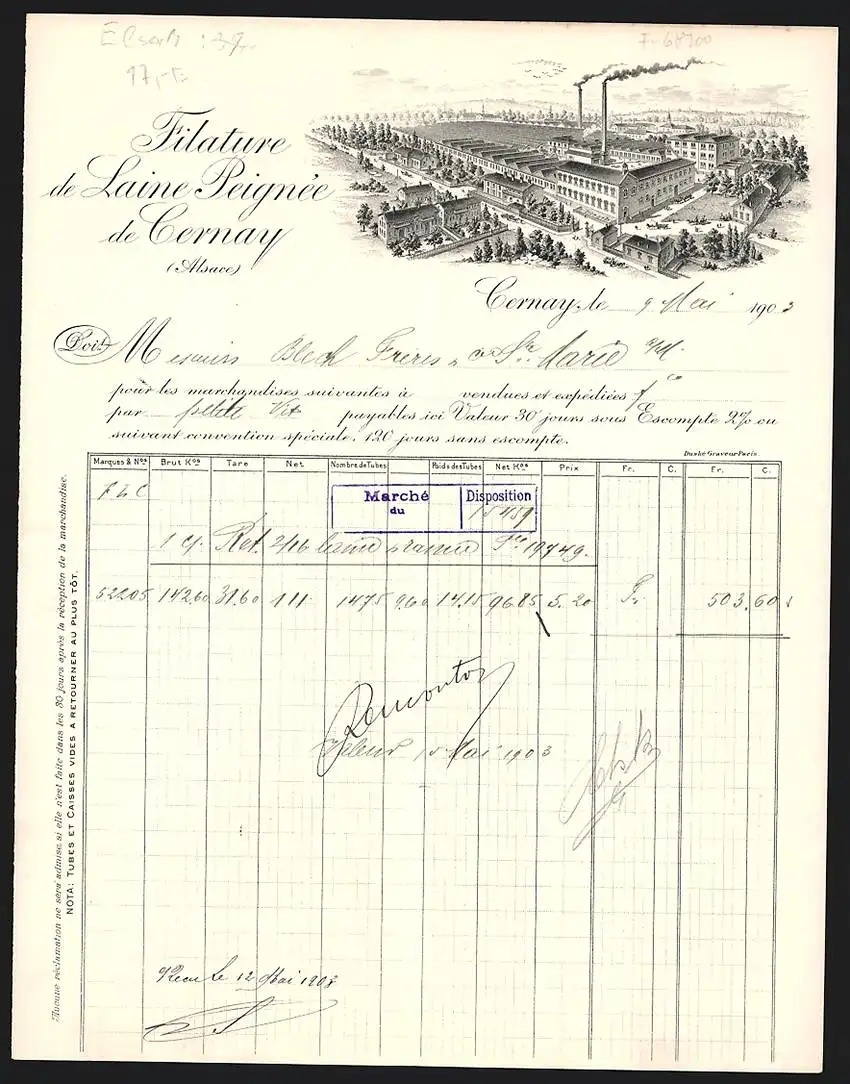 17,-
F-68700
Filature
de Laine Peignée
de Cernay
(Alsace)
Cernay, le 9 Mai 1903
Doit Messieurs Blech Frères Ste Marie a/M.
pour les marchandises suivantes à vendues et expédiées fco
par petite Vit. payables ici Valeur 30 jours sous Escompte 2% ou
suivant convention spéciale. 120 jours sans escompte.
Dushé Graveur Paris.
Marques & Nos Brut Kos Tare Net Nombre de Tubes Poids des Tubes Net Kos Prix Fr. C. Fr. C.
F L C
Marché du Disposition
15459
1 c/. Ret. 2/16 laine No 19749.
52205 142.60 31.60 111 1475 9.60 14.15 96.85 5.20 Fr. 503.60
Remonter
Valeur 15 Mai 1903
Reçu le 12 Mai 1903
Aucune réclamation ne sera admise, si elle n'est faite dans les 30 jours après la réception de la marchandise.
NOTA: TUBES ET CAISSES VIDES A RETOURNER AU PLUS TÔT.